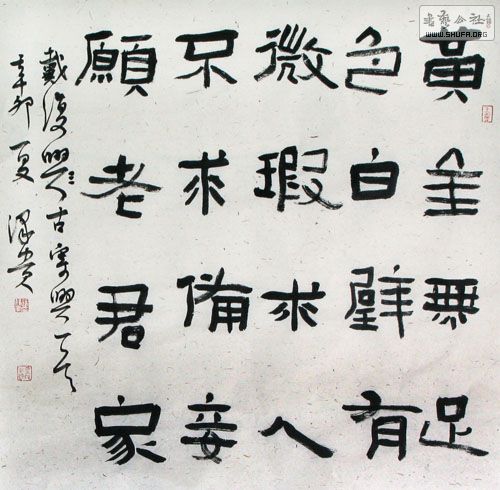 黃金無足
色白璧有
微瑕求人
不求備妾
願老君家
戴復興古寄興
辛卯夏
書藝公社
WWW.SHUFA.ORG